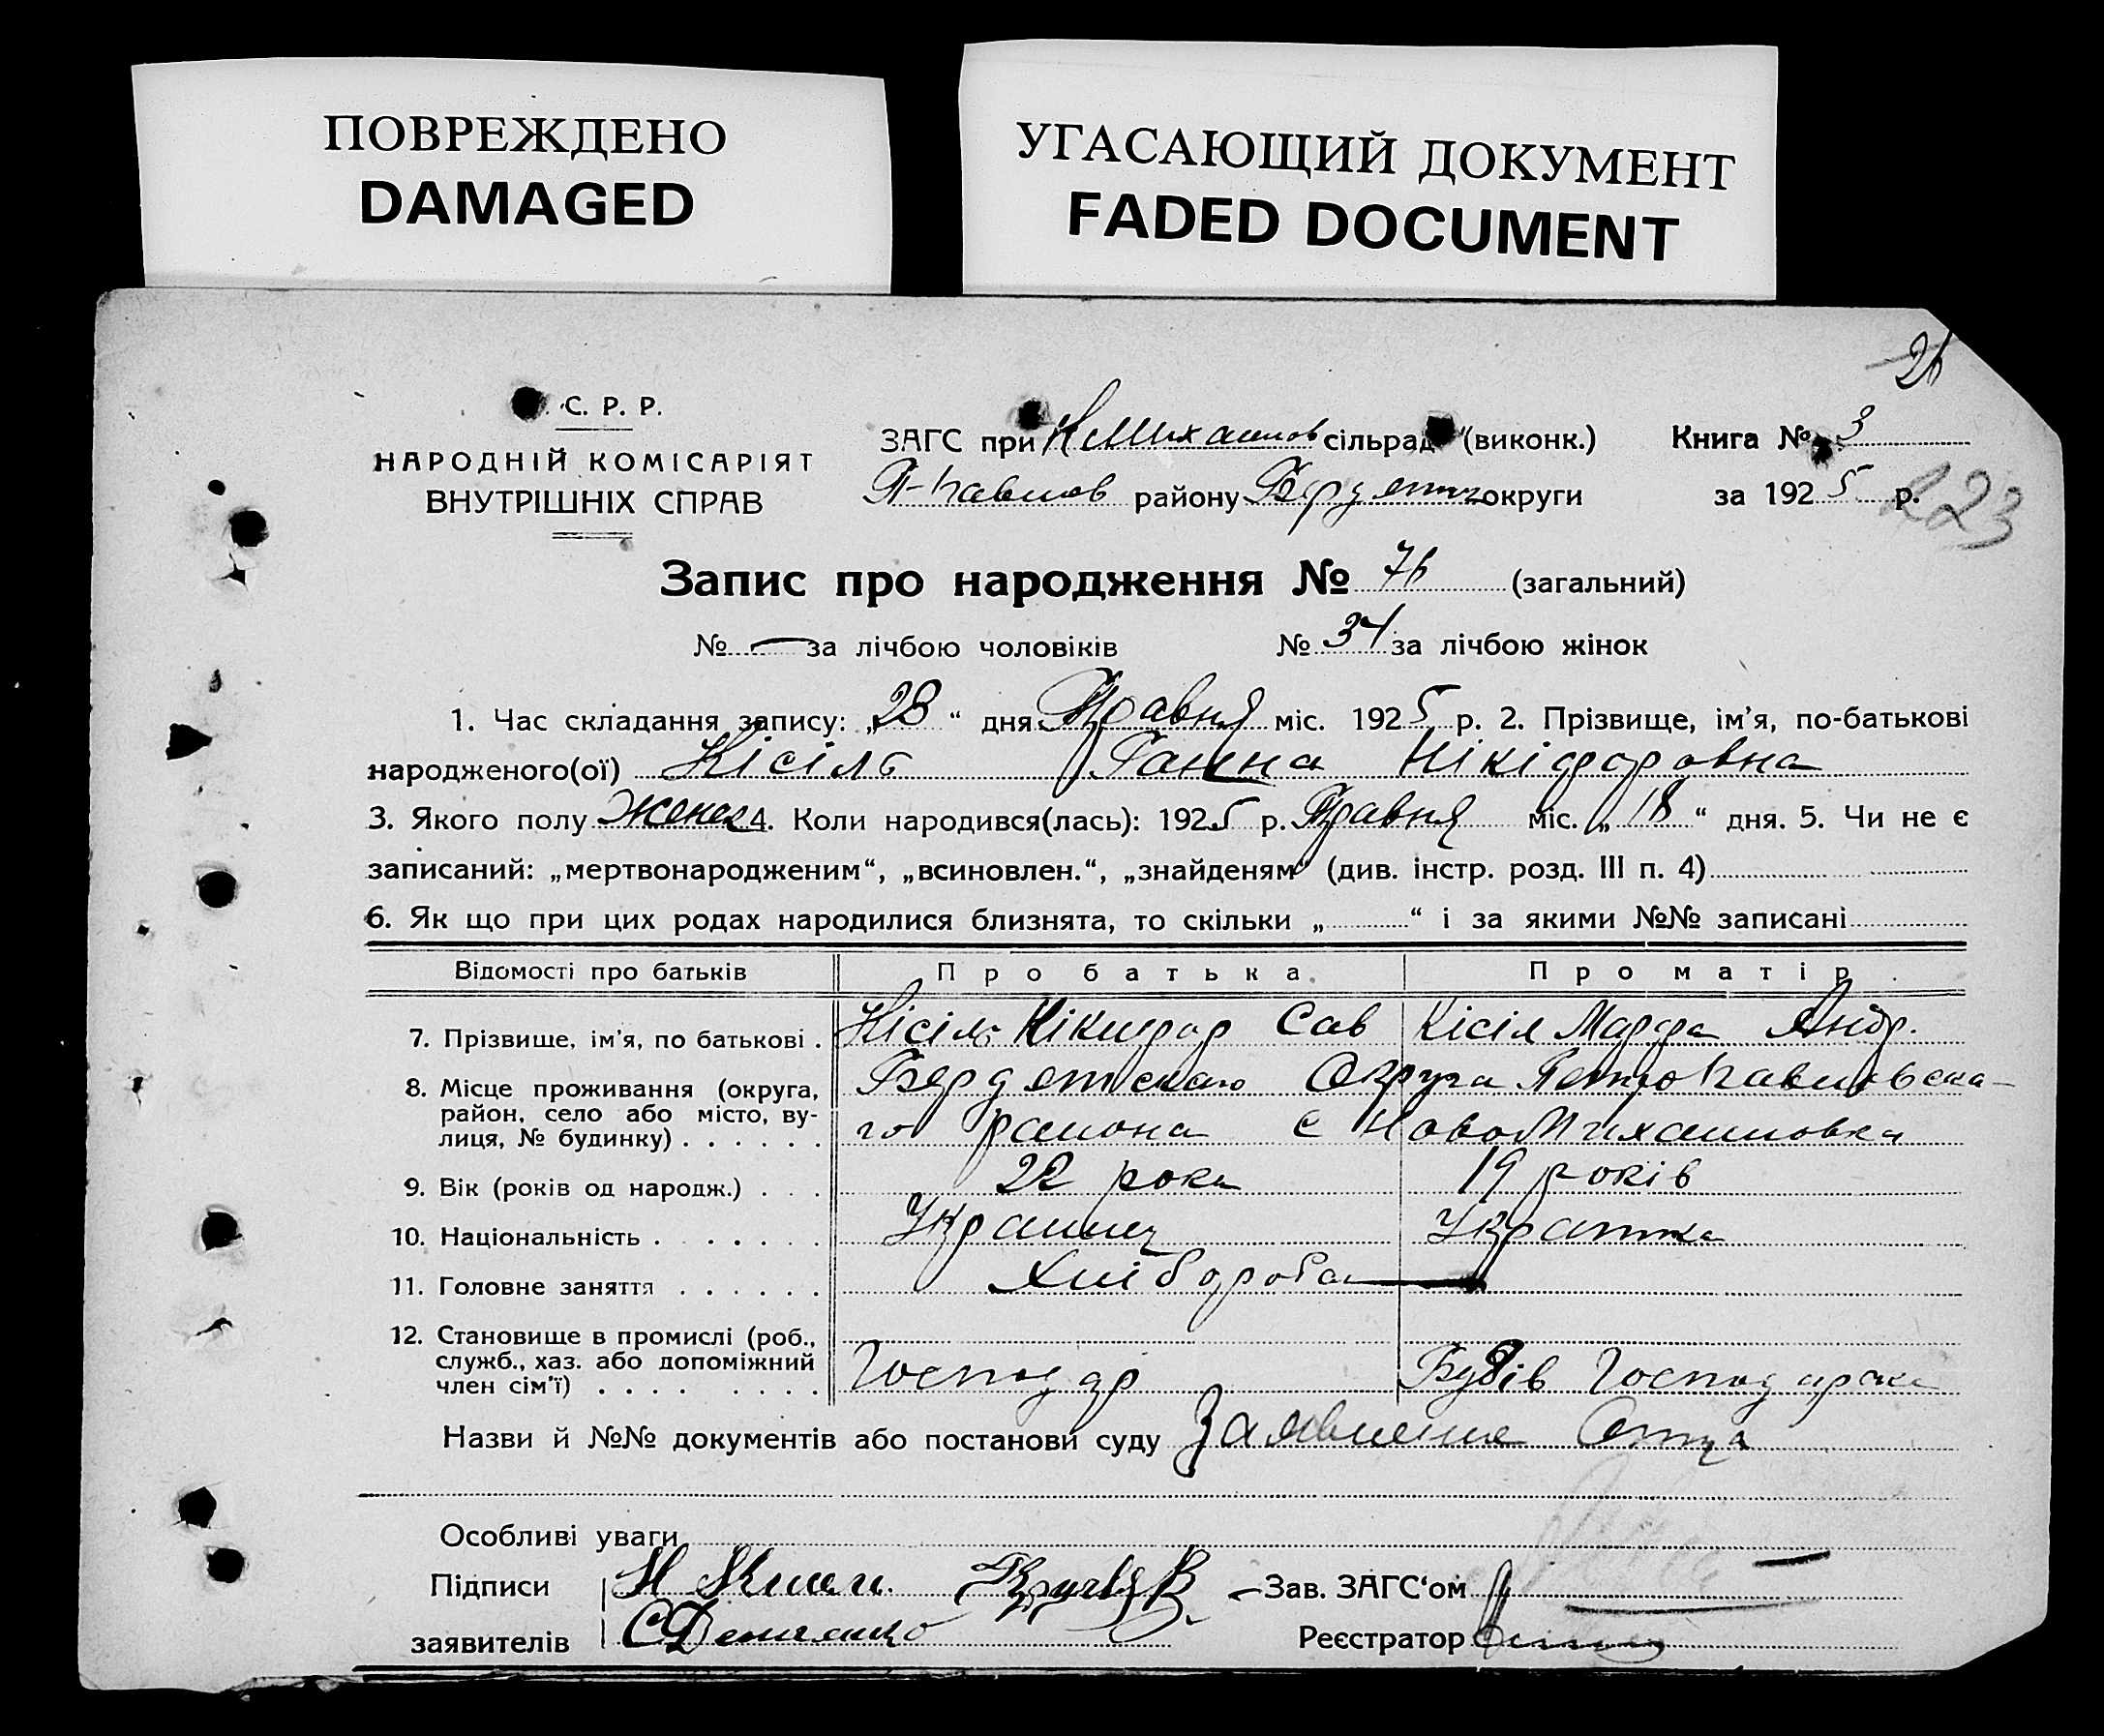 ПОВРЕЖДЕНО
DAMAGED
УГАСАЮЩИЙ ДОКУМЕНТ
FADED DOCUMENT
С. Р. Р.
НАРОДНІЙ КОМІСАРІЯТ
ВНУТРІШНІХ СПРАВ
ЗАГС при Н Михайлов сільрад (виконк.)
П-Павлов району Бердянськ округи
Книга № 3
за 1925 р.
223
Запис про народження № 76 (загальний)
№ — за лічбою чоловіків № 34 за лічбою жінок
1. Час складання запису: „28“ дня Травня міс. 1925 р. 2. Прізвище, ім'я, по-батькові
народженого(ої) Кісіль Ганна Нікіфоровна
3. Якого полу Женск 4. Коли народився(лась): 1925 р. Травня міс. „18“ дня. 5. Чи не є
записаний: „мертвонародженим“, „всиновлен.“, „знайденям“ (див. інстр. розд. III п. 4)
6. Як що при цих родах народилися близнята, то скільки „ “ і за якими №№ записані
Відомості про батьків Про батька Про матір
7. Прізвише, ім'я, по батькові . Кісіль Нікифор Сав Кісіл Марфа Андр.
8. Місце проживання (округа, район, село або місто, вулиця, № будинку) Бердянскаго Округа Петропавловска-
го района с НовоМихайловка
9. Вік (років од народж.) . . . 22 роки 19 років
10. Національність . . . . . . . Украинец Украінка
11. Головне заняття . . . . . . Хліборобан —
12. Становище в промислі (роб.,
служб., хаз. або допоміжний
член сім'ї) . . . . . . . . Господар Будів Господарка
Назви й №№ документів або постанови суду Заявление Отца
Особливі уваги
Підписи
заявителів
Зав. ЗАГС'ом
Реєстратор